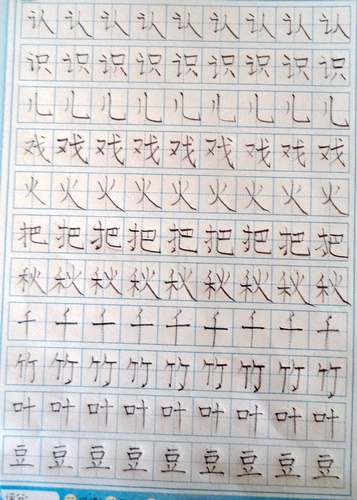 认认认认认认认认认
识识识识识识识识识
儿儿儿儿儿儿儿儿儿
戏戏戏戏戏戏戏戏戏
火火火火火火火火火
把把把把把把把把把
秋秋秋秋秋秋秋秋秋
千千千千千千千千千
竹竹竹竹竹竹竹竹竹
叶叶叶叶叶叶叶叶叶
豆豆豆豆豆豆豆豆豆